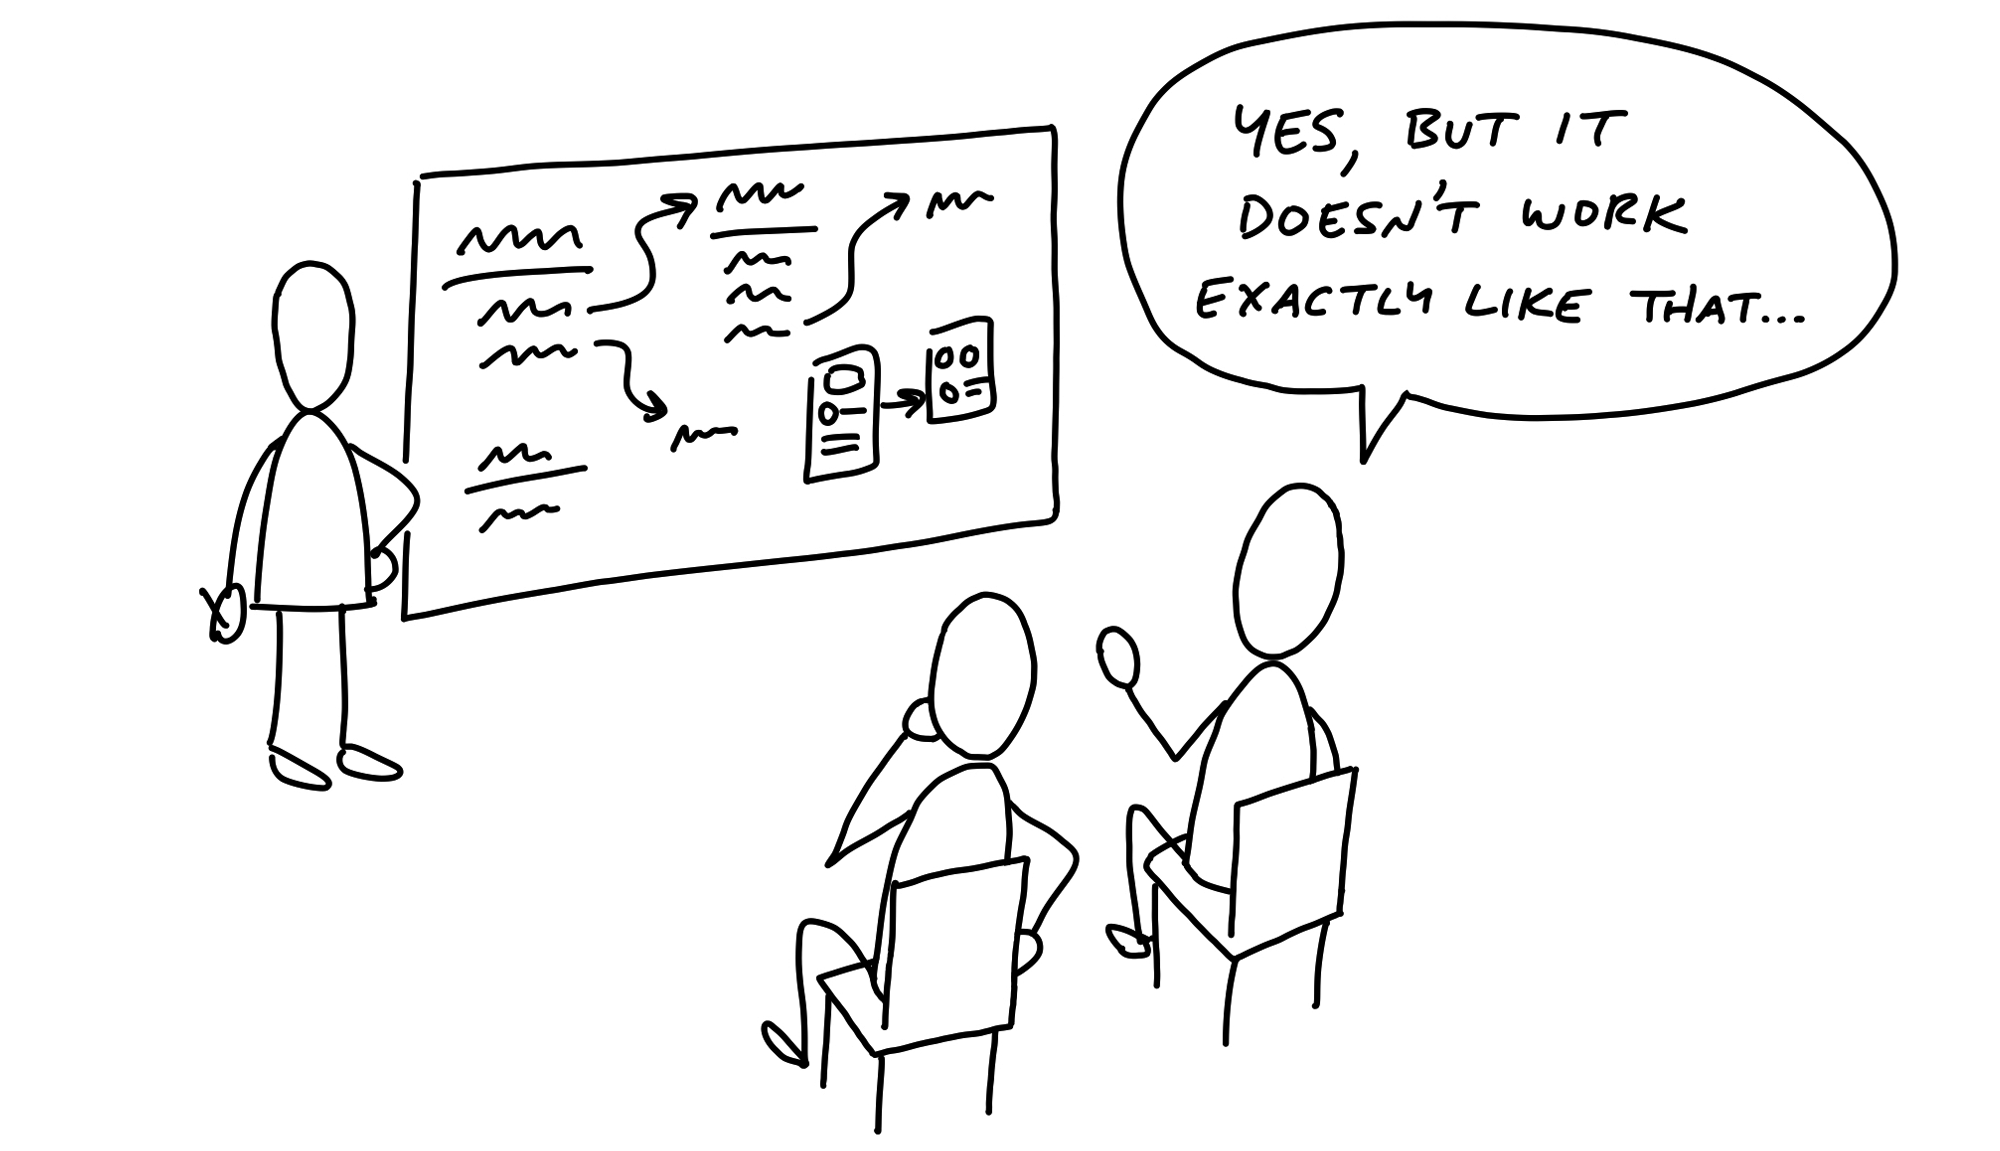 YES, BUT IT
DOESN'T WORK
EXACTLY LIKE THAT...